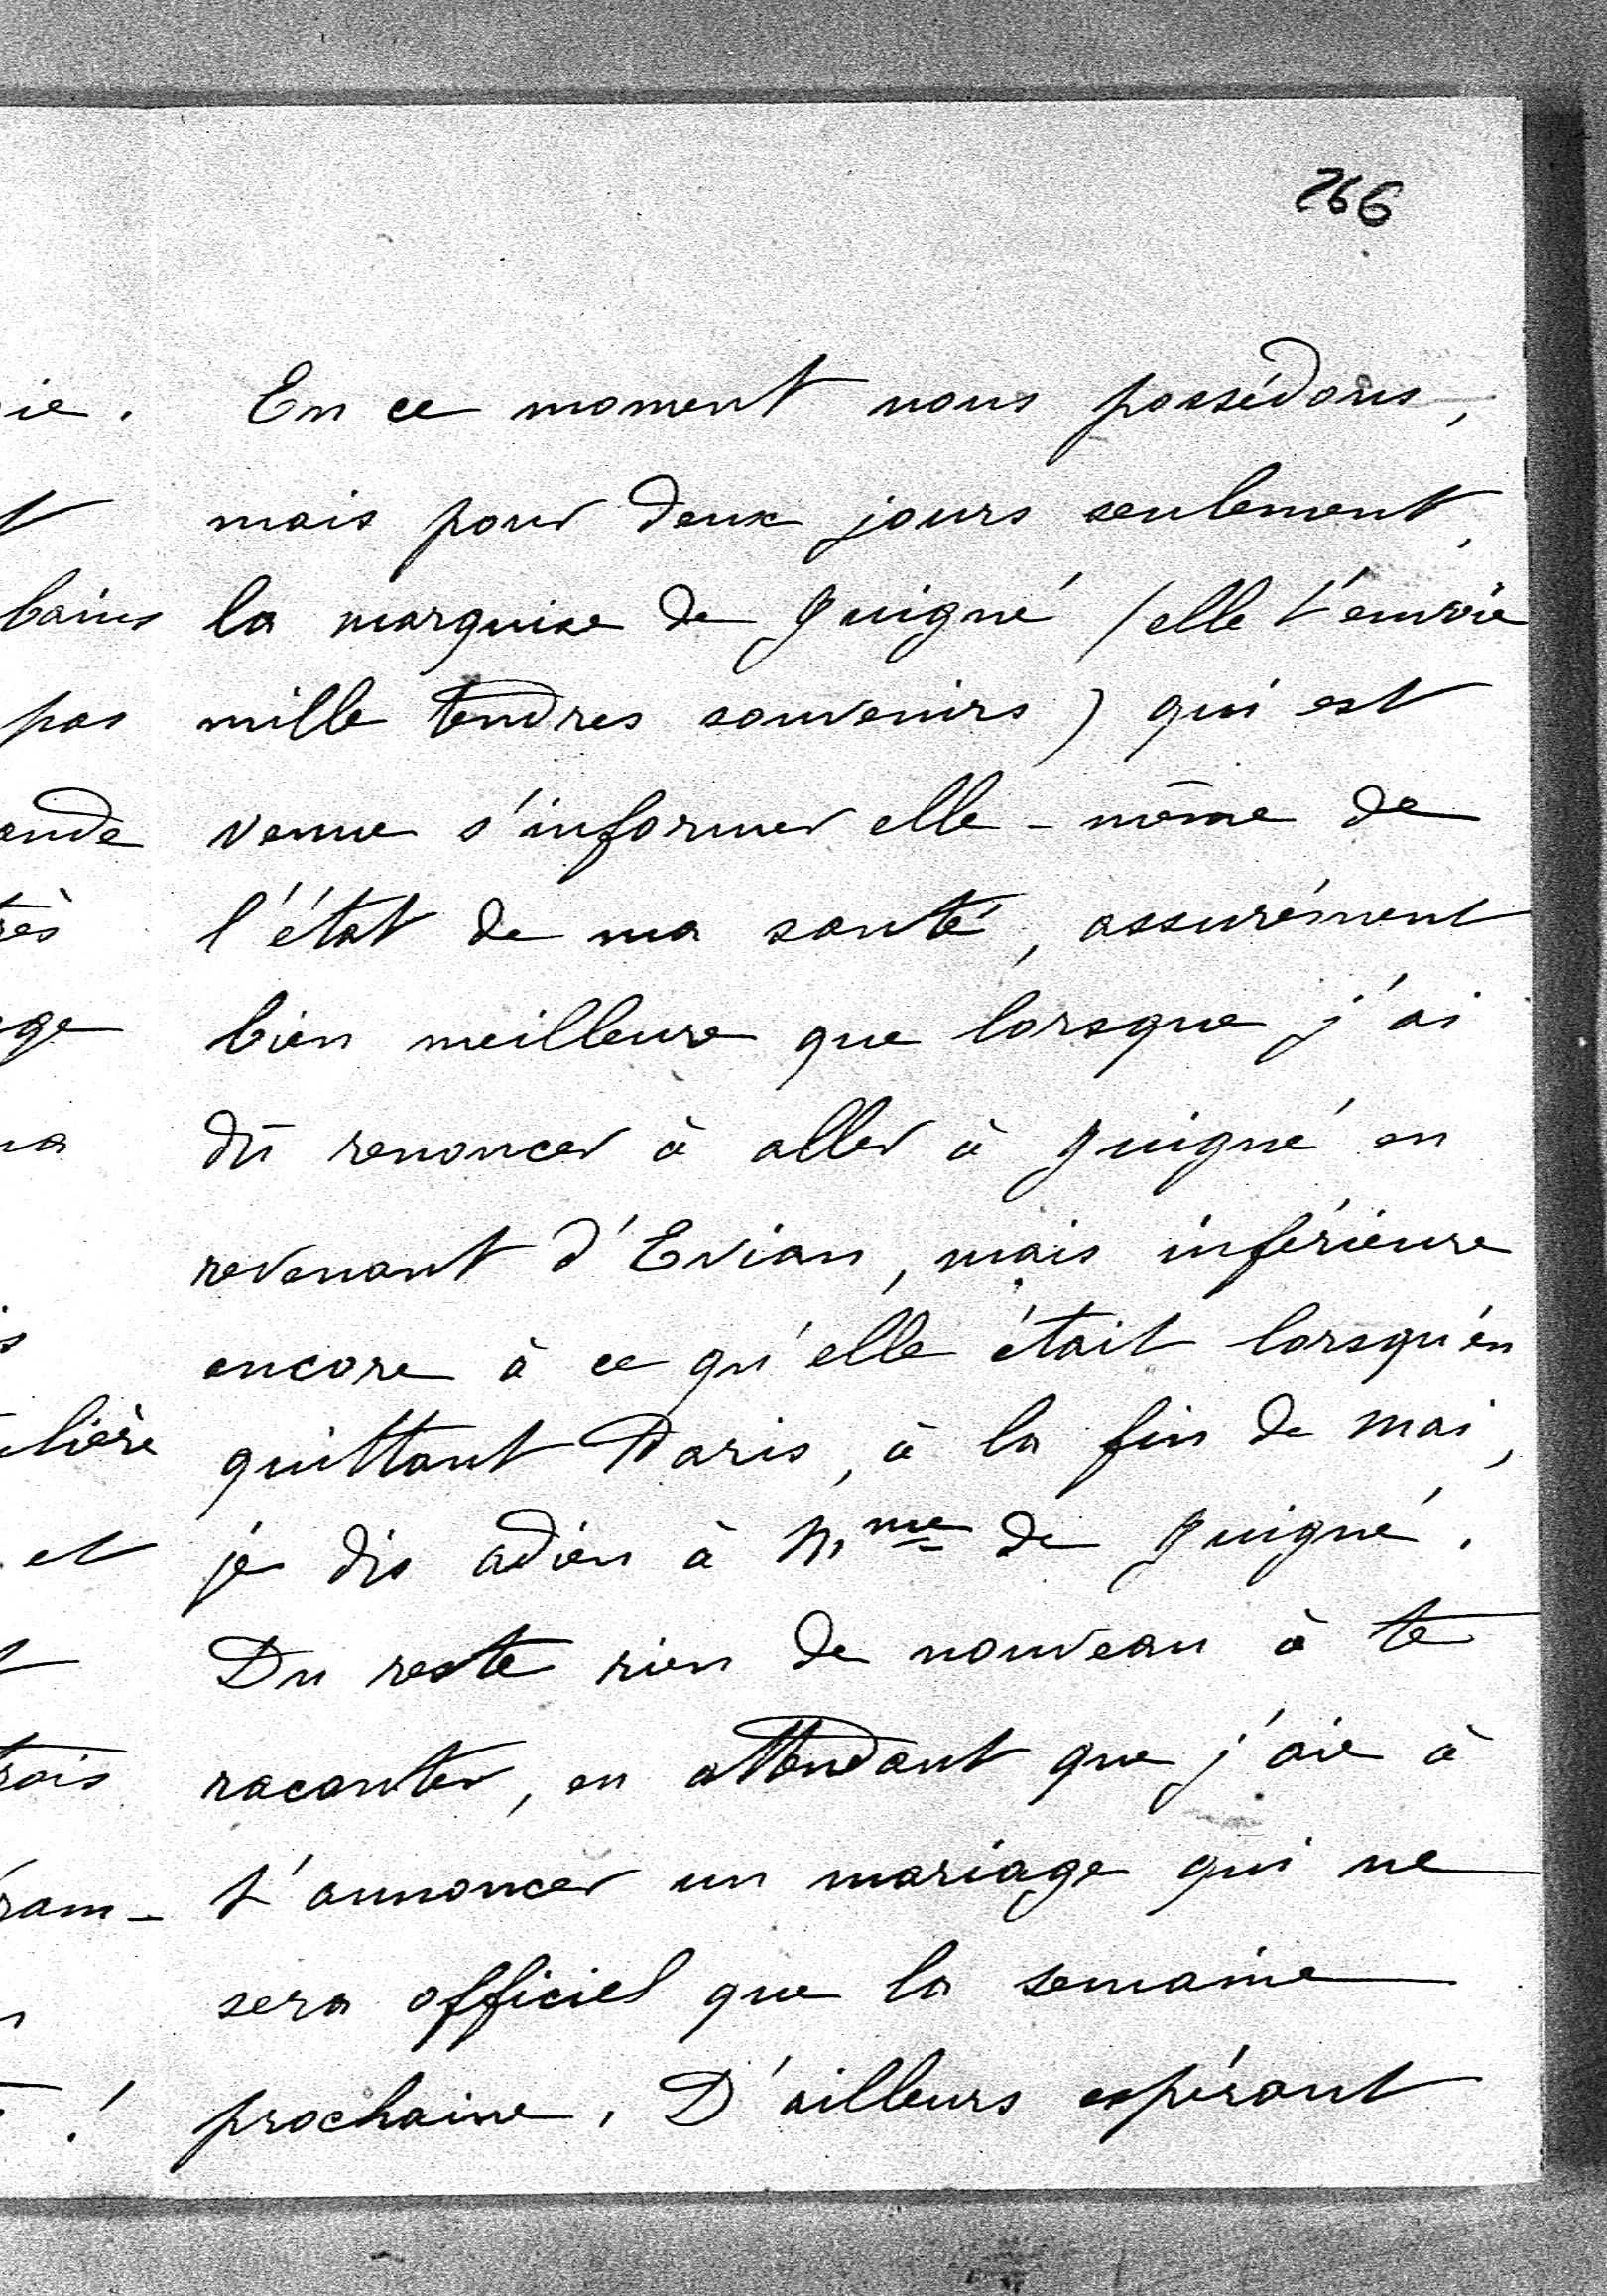 266
En ce moment nous possédons,
mais pour deux jours seulement,
la marquise de Guigné (elle t'envoie
mille tendres souvenirs) qui est
venue s'informer elle-même de
l'état de ma santé, assurément
bien meilleure que lorsque j'ai
dû renoncer à aller à Guigné en
revenant d'Evian, mais inférieure
encore à ce qu'elle était lorsqu'en
quittant Paris, à la fin de mai,
je dis adieu à Mme de Guigné.
Du reste rien de nouveau à te
raconter, en attendant que j'aie à
t'annoncer un mariage qui ne
sera officiel que la semaine
prochaine. D'ailleurs espérant